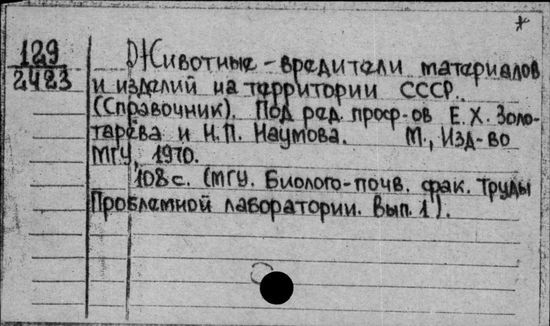 *
129
2423
Животные-вредители материалов
и изделий на территории СССР.
(Справочник). Под ред. проф-ов Е.Х. Золо-
тарёва и Н.П. Наумова. М., Изд-во
МГУ, 1970.
108 с. (МГУ. Биолого-почв. фак. Труды
Проблемной лаборатории. Вып. 1).